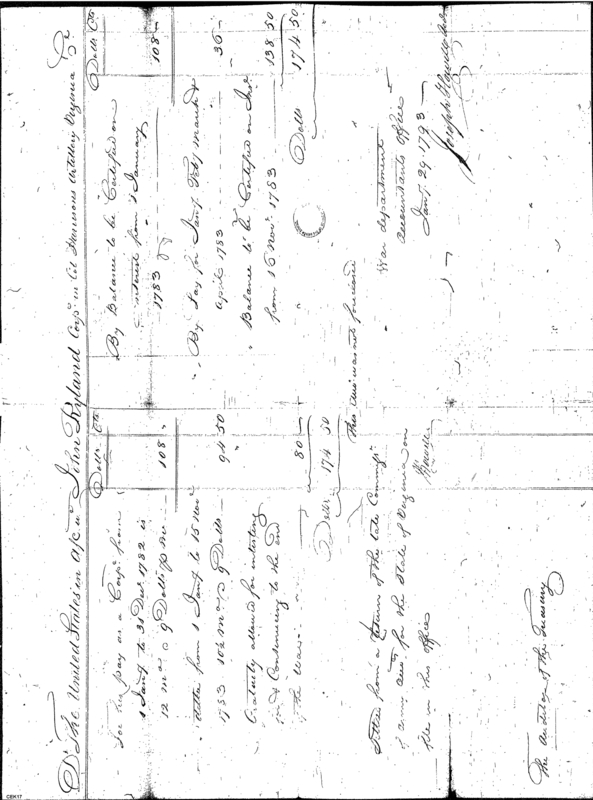 Dr The United States in a/c wth John Ryland Corpl in Col Harrisons Artillery Virginia Cr
Dolls Cts
For his pay as a Corpl from
1 Jany to 31 Decr 1782 is
12 mos @ 9 Dolls p mo 108 "
ditto from 1 Jany to 15 Novr
1783 10½ mos @ 9 Dolls 94 50
Gratuity allowed for inlisting
and Continuing to the end
of the War 80 "
Dolls 174 50
Dolls Cts
By Balance to be Certified on
interest from 1 January
1783 108 "
" By Pay for Jany Feby March &
April 1783 36 "
" Balance to be Certified on Int.
from 15 Novr 1783 138 50
Dolls 174 50
This Int was not funcioned
Settled from a return of the late Commissr
of army accts for the State of Virginia on
file in this office
War department
accountants office
Jany 29 1793
Joseph Howell
The Auditor of the Treasury
CEH17